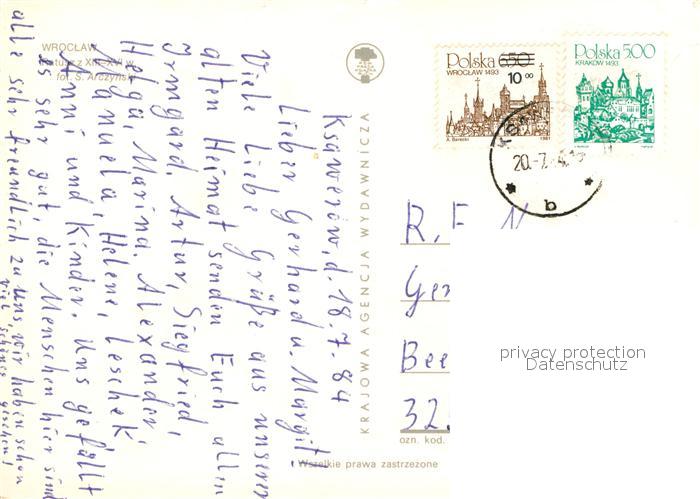 WROCŁAW
Ratusz z XIII-XVI w.
fot. S. Arczyński
Ksawerów, d. 18.7.84
Lieber Gerhard u. Margit!
Viele liebe Grüße aus unserer
alten Heimat senden Euch allen
Irmgard, Artur, Siegfried,
Helga, Marina, Alexander,
Manuela, Helene, Leschek,
Anni und Kinder. Uns gefällt
es sehr gut, die Menschen hier sind
alle sehr freundlich zu uns, wir haben schon
viel schönes gesehen!
KRAJOWA AGENCJA WYDAWNICZA
Wszelkie prawa zastrzeżone
Polska 6.50
WROCŁAW 1493
10.00
A. Barecki
1981
Polska 5.00
KRAKÓW 1493
20.-7.
b
R.F.N.
Ger
Bee
32.
ozn. kod.
privacy protection
Datenschutz